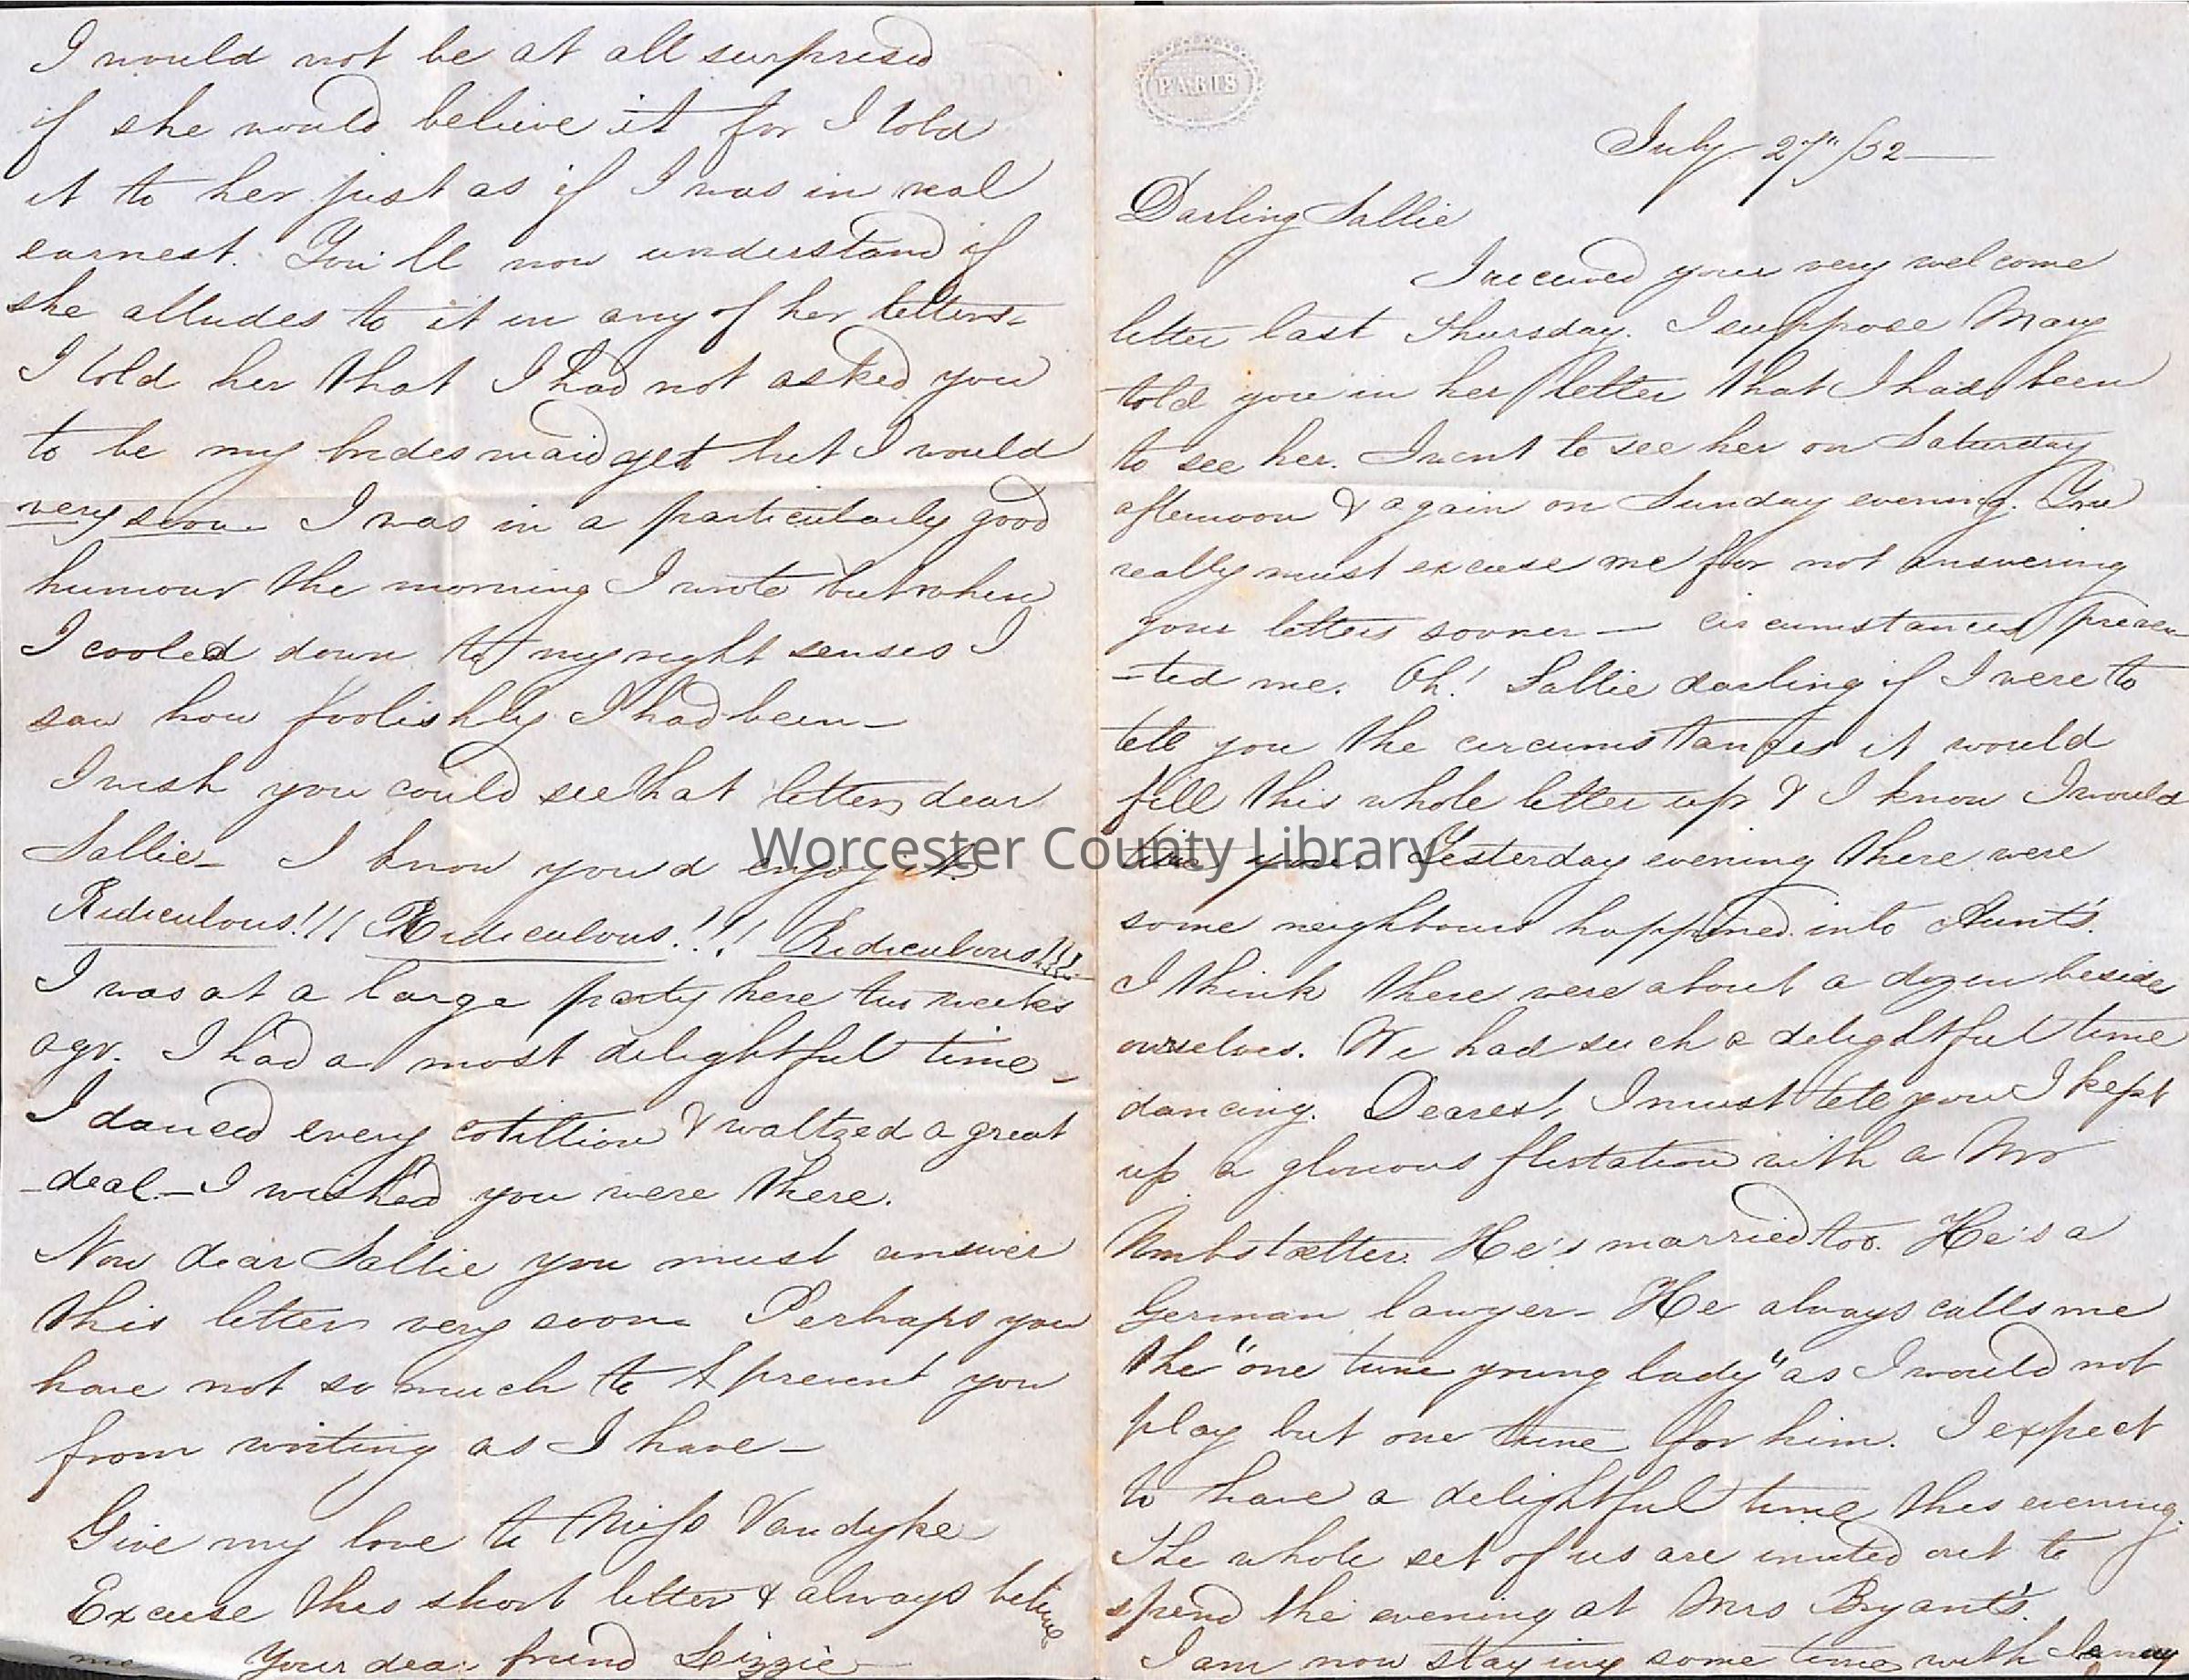 PARIS
July 27" /52
Darling Sallie
I received your very welcome
letter last Thursday. I suppose Mary
told you in her letter that I had been
to see her. I went to see her on Saturday
afternoon & again on Sunday evening. You
really must excuse me for not answering
your letters sooner — circumstances preven
-ted me. Oh! Sallie darling if I were to
tell you the circumstances it would
fill this whole letter up & I know I would
tire you. Yesterday evening there were
some neighbours happened into Aunt's.
I think there were about a dozen beside
ourselves. We had such a delightful time
dancing. Dearest, I must tell you I kept
up a glorious flirtation with a Mr
Umbstætter. He's married too. He's a
German lawyer – He always calls me
the "one tune young lady" as I would not
play but one tune for him. I expect
to have a delightful time this evening.
The whole set of us are invited out to
spend the evening at Mrs Bryant's.
I am now staying some time with
I would not be at all surprised
if she would believe it for I told
it to her just as if I was in real
earnest. You'll now understand if
she alludes to it in any of her letters–
I told her that I had not asked you
to be my bridesmaid yet but I would
very soon. I was in a particularly good
humour the morning I wrote but when
I cooled down to my right senses I
saw how foolishly I had been –
I wish you could see that letter, dear
Sallie – I know you'd enjoy it.
Ridiculous!!! Ridiculous!!! Ridiculous!!!
I was at a large party here two weeks
ago. I had a most delightful time –
I danced every cotillion & waltzed a great
deal – I wished you were there.
Now dear Sallie you must answer
this letter very soon. Perhaps you
have not so much to prevent you
from writing as I have –
Give my love to Miss Vandyke
Excuse this short letter & always believe
me Your dear friend Lizzie
Worcester County Library